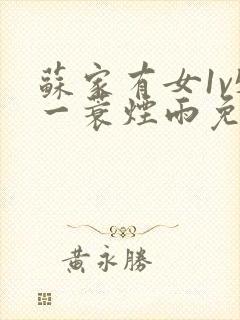 蘇家有女1v
一蓑煙雨免
黃永勝